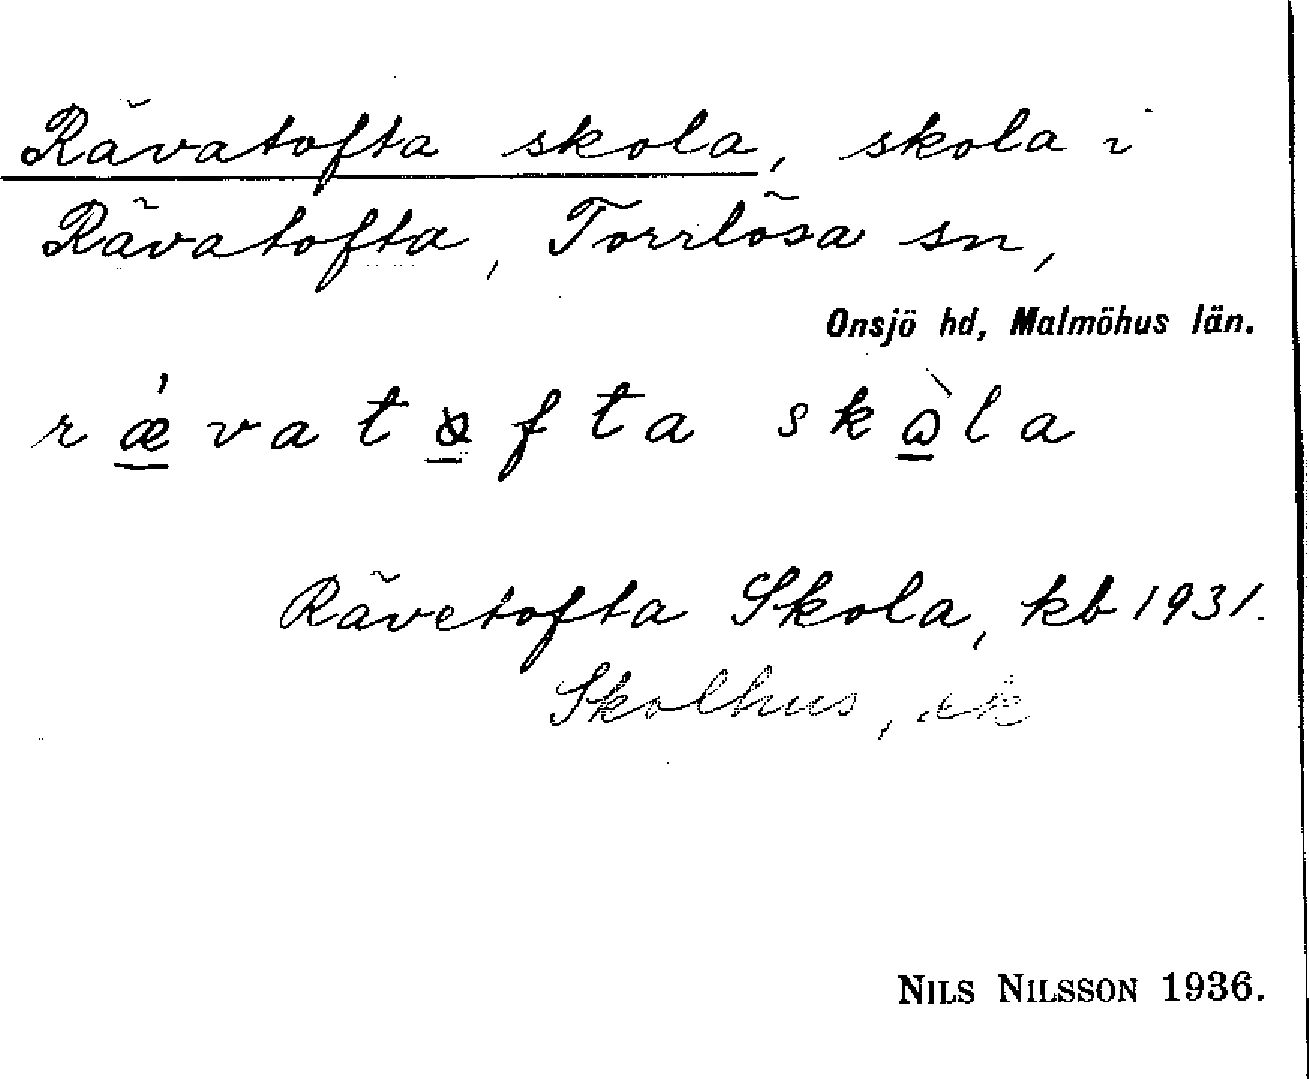 Rävatofta skola, skola i
Rävatofta, Torrlösa sn,
Onsjö hd, Malmöhus län.
ræ̀vatofta skòla
Rävetofta Skola, kb 1931.
Skolhus, ek
NILS NILSSON 1936.